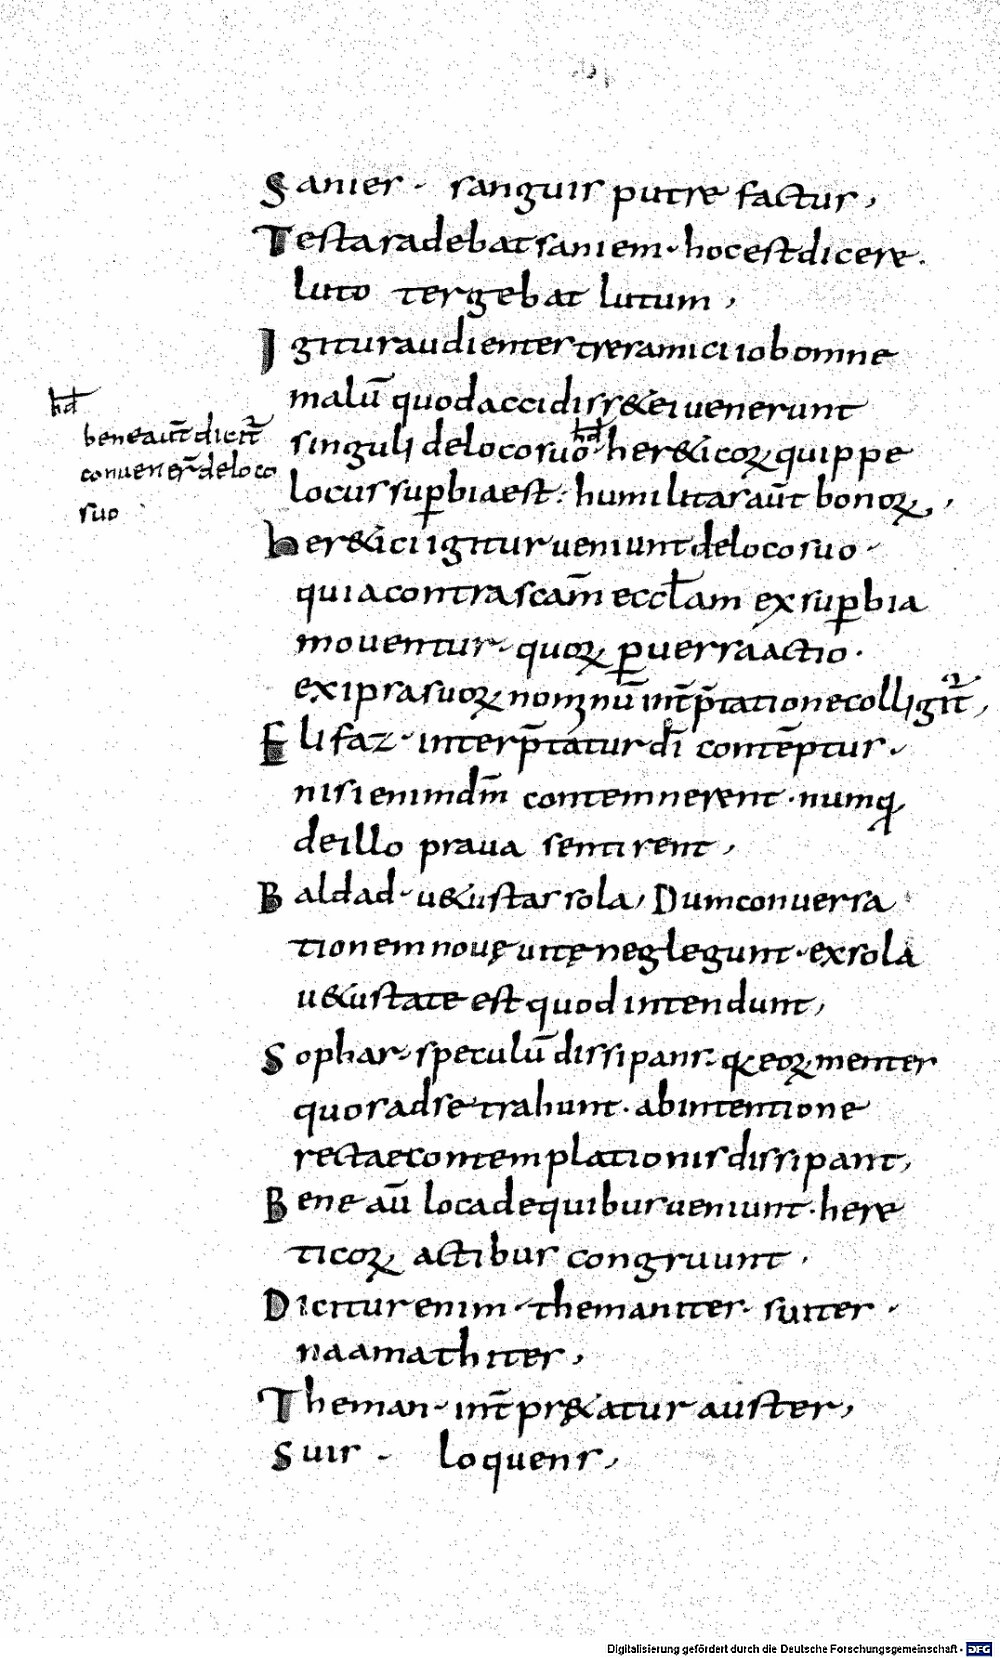 Sanies · sanguis putre factus,
Testa radebat saniem · hoc est dicere ·
luto tergebat lutum,
Igitur audientes tres amici iob omne
malū quod accidiss& ei uenerunt
singuli de loco suo · hd her&icoꝝ quippe
locus suꝑbia est · humilitas aut̄ bonoꝝ,
hd
bene aut̄ dicit̄
conuener̄ de loco
suo
her&ici igitur ueniunt de loco suo ·
quia contra scam̄ eccl̄am ex suꝑbia
mouentur · quoꝝ ꝑuersa actio ·
ex ipsa suoꝝ nominū int̄p̄tatione colligit̄,
Elifaz · interp̄tatur dī contēptus ·
nisi enim dm̄ contemnerent · numꝗ
de illo praua sentirent,
Baldad · u&ustas sola, Dum conuersa
tionem nouę uitę neglegunt · ex sola
u&ustate est quod intendunt,
Sophar · speculū dissipans · ꝗ eoꝝ mentes
quos ad se trahunt · ab intentione
rectae contemplationis dissipant,
Bene aū loca de quibus ueniunt · here
ticoꝝ actibus congruunt ·
Dicitur enim · themanites · suites ·
naamathites,
Theman · int̄pr&atur auster,
Suis · loquens,